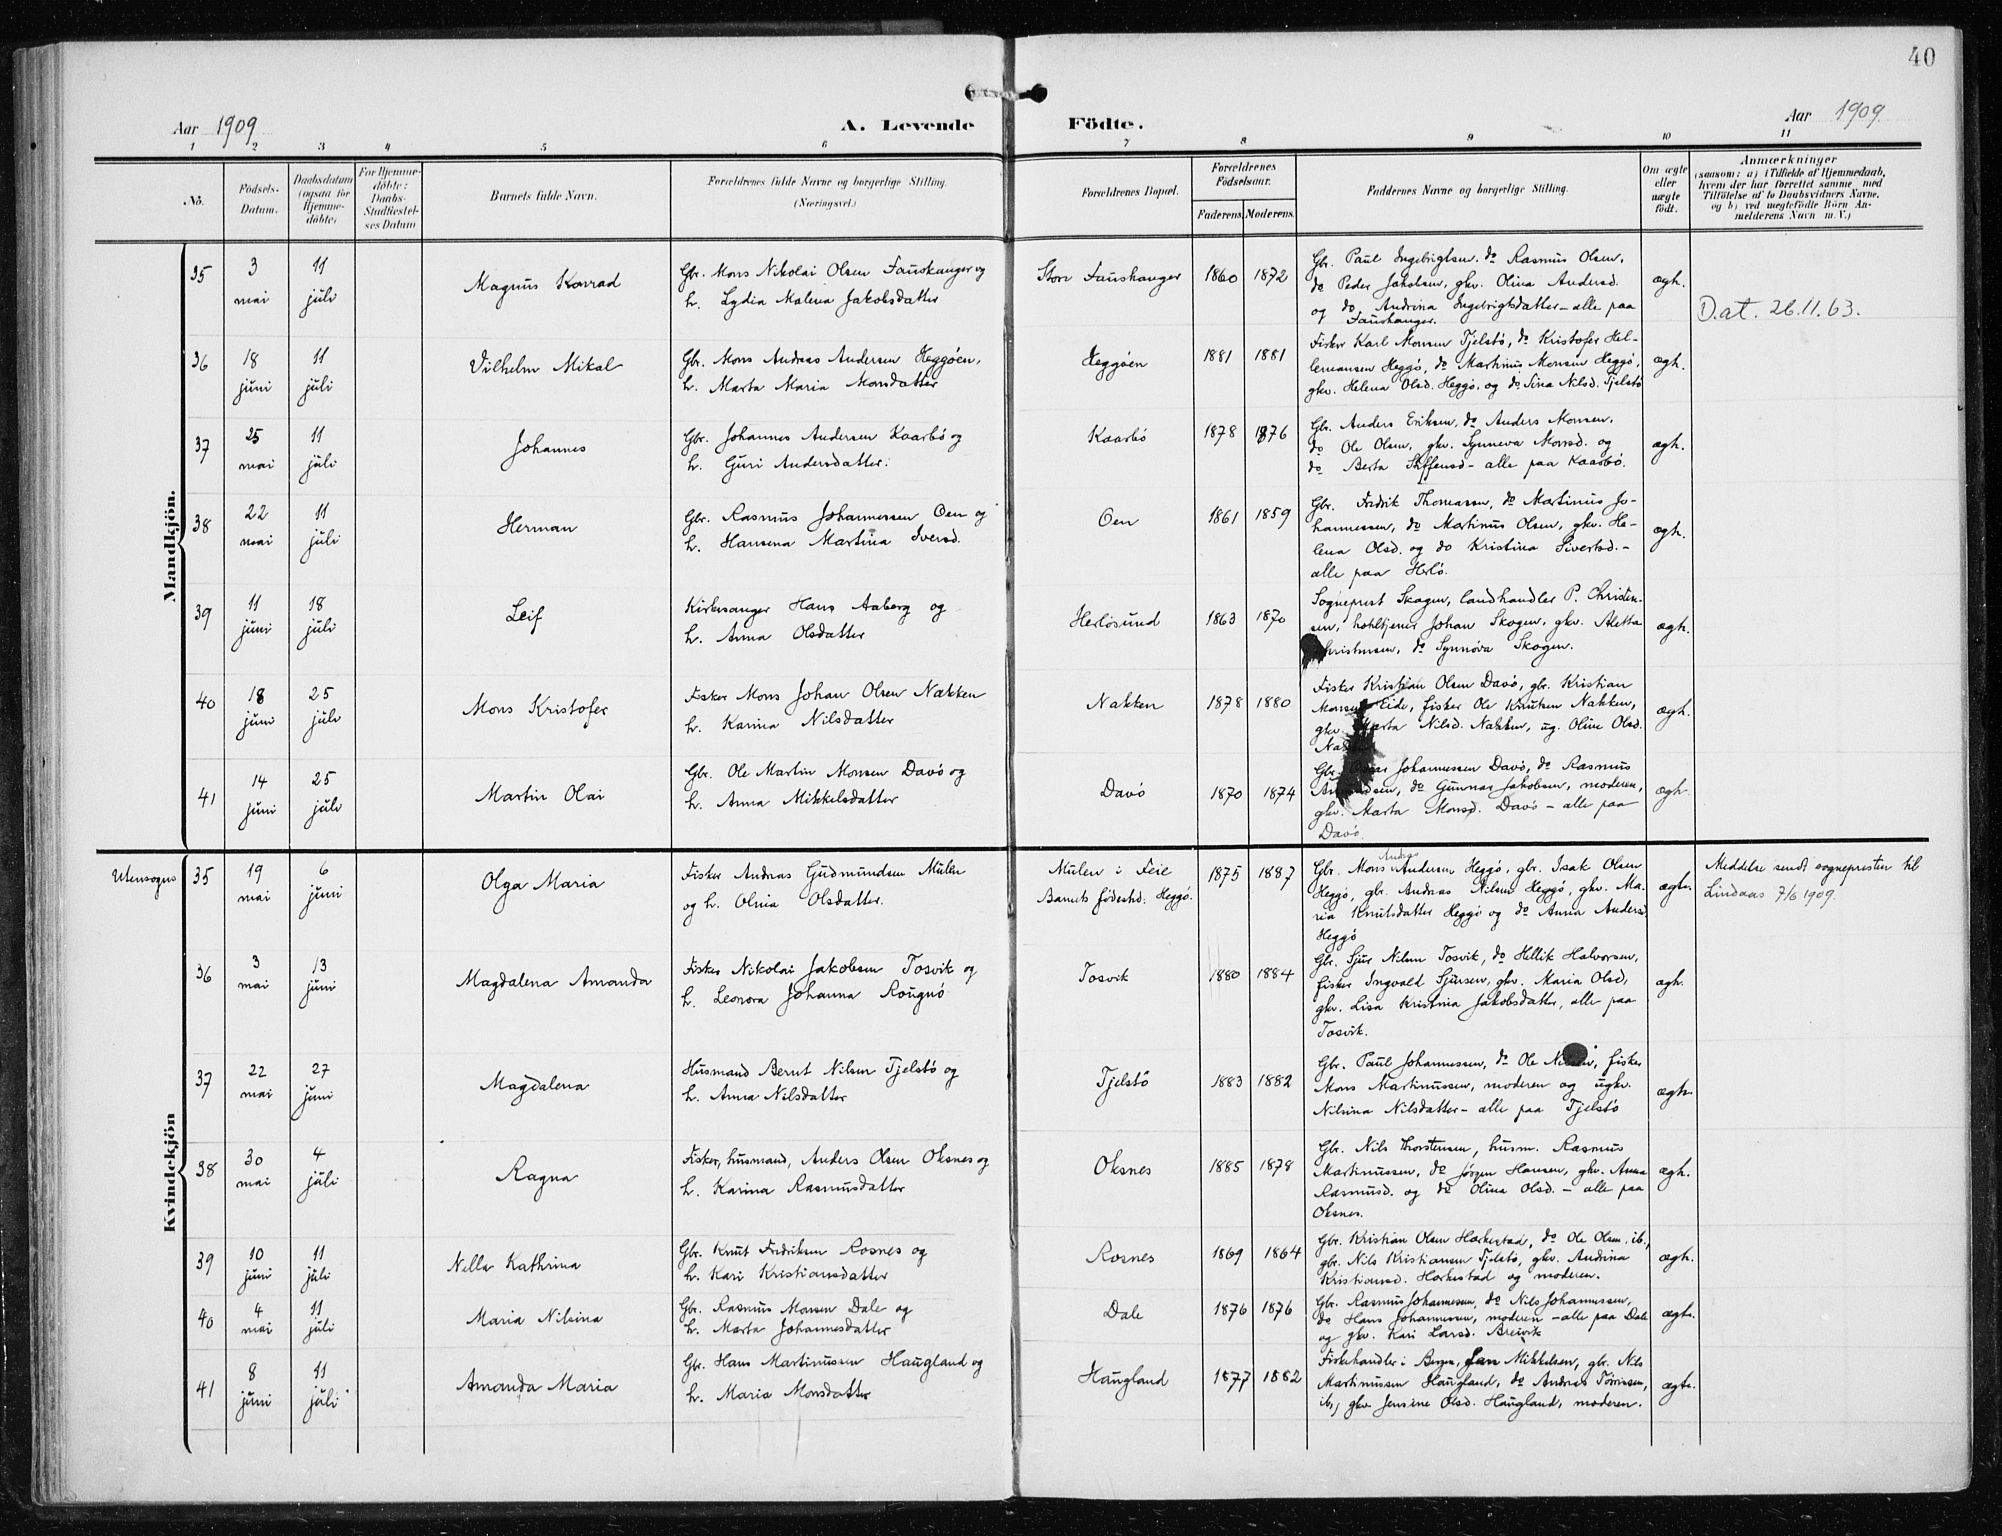 40
Aar 1909
A. Levende Födte.
Aar 1909.
1 2 3 4 5 6 7 8 9 10 11
No.
Födsels-
Datum.
Daabsdatum
(ogsaa for
Hjemme-
döbte)
For Hjemme-
döbte:
Daabs-
Stadfæstel-
ses Datum
Barnets fulde Navn.
Forældrenes fulde Navne og borgerlige Stilling.
(Næringsvei.)
Forældrenes Bopæl.
Forældrenes
Födselsaar.
Faderens. Moderens.
Faddernes Navne og borgerlige Stilling.
Om ægte
eller
uægte
födt.
Anmærkninger
(saasom: a) i Tilfælde af Hjemmedaab,
hvem der har forrettet samme med
Tilföielse af to Daabsvidners Navne,
og b) ved uægtefödte Börn An-
melderens Navn m. V.)
Mandkjön.
35
3
mai
11
juli
Magnus Konrad
Gbr. Mons Nikolai Olsen Fauskanger og
h. Lydia Malena Jakobsdatter
Store Fauskanger
1860 1872
Gbr. Paul Ingebrigtsen, do Rasmus Olsen,
do Peder Jakobsen, gkv. Olina Andersd.
og do Andrina Ingebrigtsdatter – alle paa
Fauskanger.
ægte.
Dat. 26.11.63.
36
18
juni
11
juli
Vilhelm Mikal
Gbr. Mons Andreas Andersen Heggøen,
h. Marta Maria Monsdatter
Heggøen
1881 1881
Fisker Karl Monsen Tjelstø, do Kristofer Hel-
lemansen Heggø, do Martinus Monsen Heggø,
gkv. Helena Olsd. Heggø, og do Sina Nilsd. Tjelstø
ægte.
37
25
mai
11
juli
Johannes
Gbr. Johannes Andersen Kaarbø og
h. Guri Andersdatter.
Kaarbø
1878 1876
Gbr. Anders Eriksen, do Anders Monsen,
do Ole Olsen, gkv. Synneva Monsd. og
do Berta Steffensd – alle paa Kaarbø.
ægte.
38
22
mai
11
juli
Herman
Gbr. Rasmus Johannessen Oen og
h. Hansena Martina Iversd.
Oen
1861 1859
Gbr. Fredrik Thomassen, do Martinus Jo-
hannessen, do Martinus Olsen, gkv. He-
lena Olsd. og do Kristina Sivertsd. –
alle paa Herlø.
ægte.
39
11
juni
18
juli
Leif
Kirkesanger Hans Aaberg og
h. Anna Olsdatter
Herløsund
1863 1870
Sogneprest Skagen, landhandler P. Christen-
sen, Johan Skogen, gkv. Aletta
Christensen, do Synnøva Skogen.
ægte.
40
18
juni
25
juli
Mons Kristofer
Fisker Mons Johan Olsen Nakken
h. Karina Nilsdatter
Nakken
1878 1880
Fisker Kristian Olsen Davø, gbr. Kristian
Monsen Eide, fisker Ole Knutsen Nakken,
gkv. Marta Nilsd. Nakken, ug. Oline Olsd.
ægte.
41
14
juni
25
juli
Martin Olai
Gbr. Ole Martin Monsen Davø og
h. Anna Mikkelsdatter
Davø
1870 1874
Gbr. Johannessen Davø, do Rasmus
do Gunnar Jakobsen, moderen,
gkv. Marta Monsd. Davø – alle paa
Davø.
ægte.
Kvindekjön
Utensogns
35
19
mai
6
juni
Olga Maria
Fisker Andreas Gudmundsen Mulen
og h. Olina Olsdatter.
Mulen i Feie
Barnets fødested: Heggø.
1875 1887
Gbr. Mons Andreas Andersen Heggø, gbr. Isak Olsen
Heggø, gbr. Andreas Nilsen Heggø, gkv. Ma-
ria Knutsdatter Heggø og do Anna Andersd.
Heggø
ægte.
Meddelse sendt sognepresten til
Lindaas 7/6 1909.
36
3
mai
13
juni
Magdalena Amanda
Fisker Nikolai Jakobsen Tosvik og
h. Leonora Johanna Rougnø
Tosvik
1880 1884
Gbr. Sjur Nilsen Tosvik, do Hellik Halvorsen,
fisker Ingvald Sjursen, gkv. Maria Olsd,
gkv. Lisa Kristina Jakobsdatter, alle paa
Tosvik.
ægte.
37
22
mai
27
juni
Magdalena
Husmand Bernt Nilsen Tjelstø og
h. Anna Nilsdatter
Tjelstø
1883 1882
Gbr. Paul Johannessen, do Ole Nilsen, fisker
Mons Martinussen, moderen og ugkv.
Nilsina Nilsdatter – alle paa Tjelstø
ægte.
38
30
mai
4
juli
Ragna
Fisker, husmand, Anders Olsen Oksnes og
h. Karina Rasmusdatter
Oksnes
1885 1878
Gbr. Nils Thorstensen, husm. Rasmus
Martinussen, do Jørgen Hansen, gkv. Anna
Rasmusd. og do Olina Olsd. – alle paa
Oksnes.
ægte.
39
10
juni
11
juli
Nella Kathrina
Gbr. Knut Fredriksen Rosnes og
h. Kari Kristiansdatter
Rosnes
1869 1864
Gbr. Kristian Olsen Harkestad, do Ole Olsen ib.,
gbr. Nils Kristiansen Tjelstø, gkv. Andrina
Kristiansd. Harkestad og moderen.
ægte.
40
4
mai
11
juli
Maria Nilsina
Gbr. Rasmus Monsen Dale og
h. Marta Johannesdatter
Dale
1876 1876
Gbr. Rasmus Johannessen, do Nils Johannessen,
do Hans Johannessen, moderen – alle paa Dale
og gkv. Kari Larsd. Breivik
ægte.
41
8
juni
11
juli
Amanda Maria
Gbr. Hans Martinussen Haugland og
h. Maria Monsdatter
Haugland
1877 1882
Fiskehandler i Bergen, Jan Mikkelsen, gbr. Nils
Martinussen Haugland, do Andreas Tørrissen,
ib., gkv. Jensine Olsd. Haugland, moderen.
ægte.